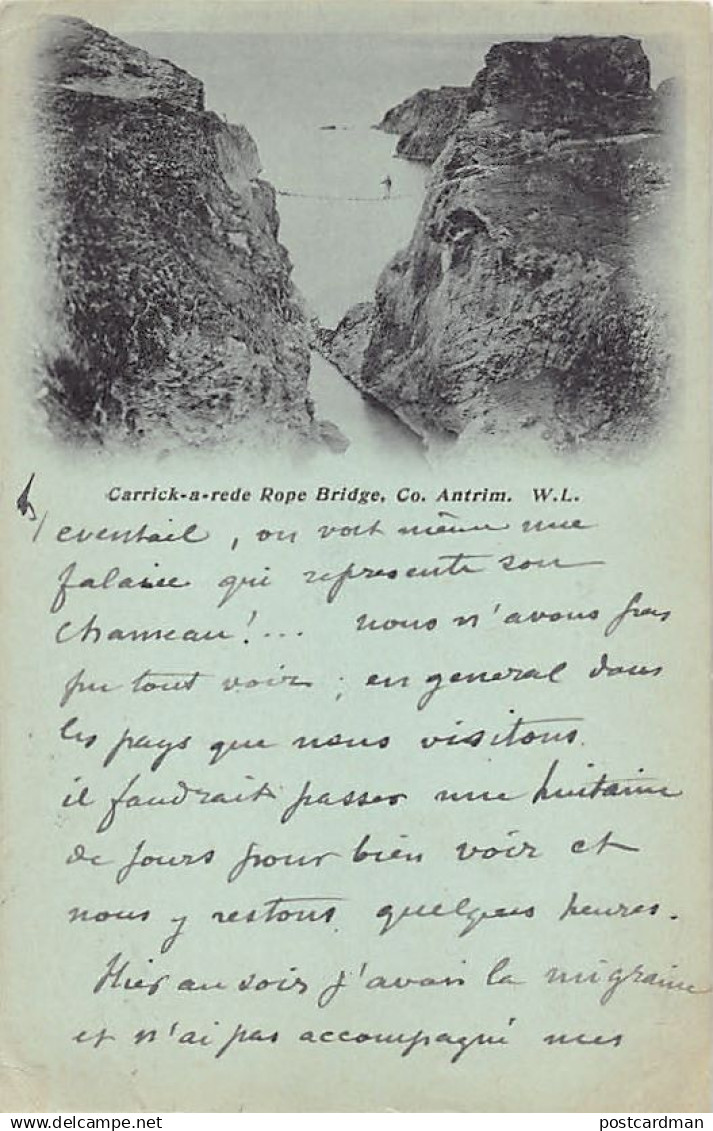 Carrick-a-rede Rope Bridge, Co. Antrim. W.L.
eventail, on voit même une
falaise qui représente son
chameau!... nous n'avons pas
pu tout voir; en general dans
les pays que nous visitons
il faudrait passer une huitaine
de jours pour bien voir et
nous y restons quelques heures.
Hier au soir j'avais la migraine
et n'ai pas accompagné mes
postcardman